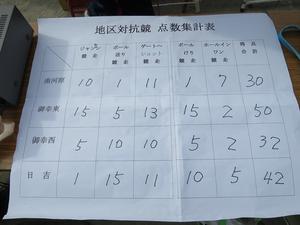 地区対抗競 点数集計表
ボール ゲートへ ボール ホールイン 得点
競走 送り シュート けり ワン 合計
競走 競走
南河原 10 11 1 7 30
御幸東 15 5 13 15 2 50
御幸西 5 10 10 5 2 32
日吉 1 15 11 10 5 42